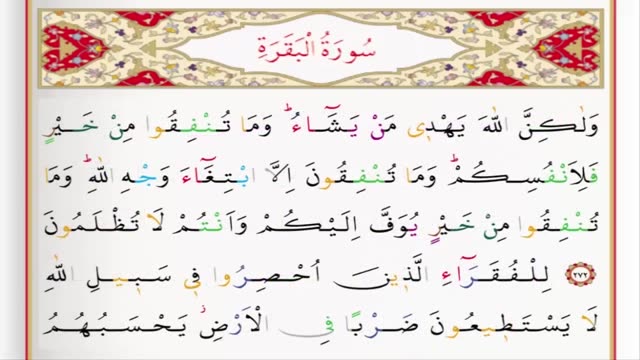 سُورَةُ الْبَقَرَةِ
وَلٰكِنَّ اللّٰهَ يَهْدٖى مَنْ يَشَٓاءُؕ وَمَا تُنْفِقُوا مِنْ خَيْرٍ
فَلِاَنْفُسِكُمْؕ وَمَا تُنْفِقُونَ اِلَّا ابْتِغَٓاءَ وَجْهِ اللّٰهِؕ وَمَا
تُنْفِقُوا مِنْ خَيْرٍ يُوَفَّ اِلَيْكُمْ وَاَنْتُمْ لَا تُظْلَمُونَ
﴿٢٧٢﴾ لِلْفُقَرَٓاءِ الَّذٖينَ اُحْصِرُوا فٖى سَبٖيلِ اللّٰهِ
لَا يَسْتَطٖيعُونَ ضَرْبًا فِى الْاَرْضِؗ يَحْسَبُهُمُ